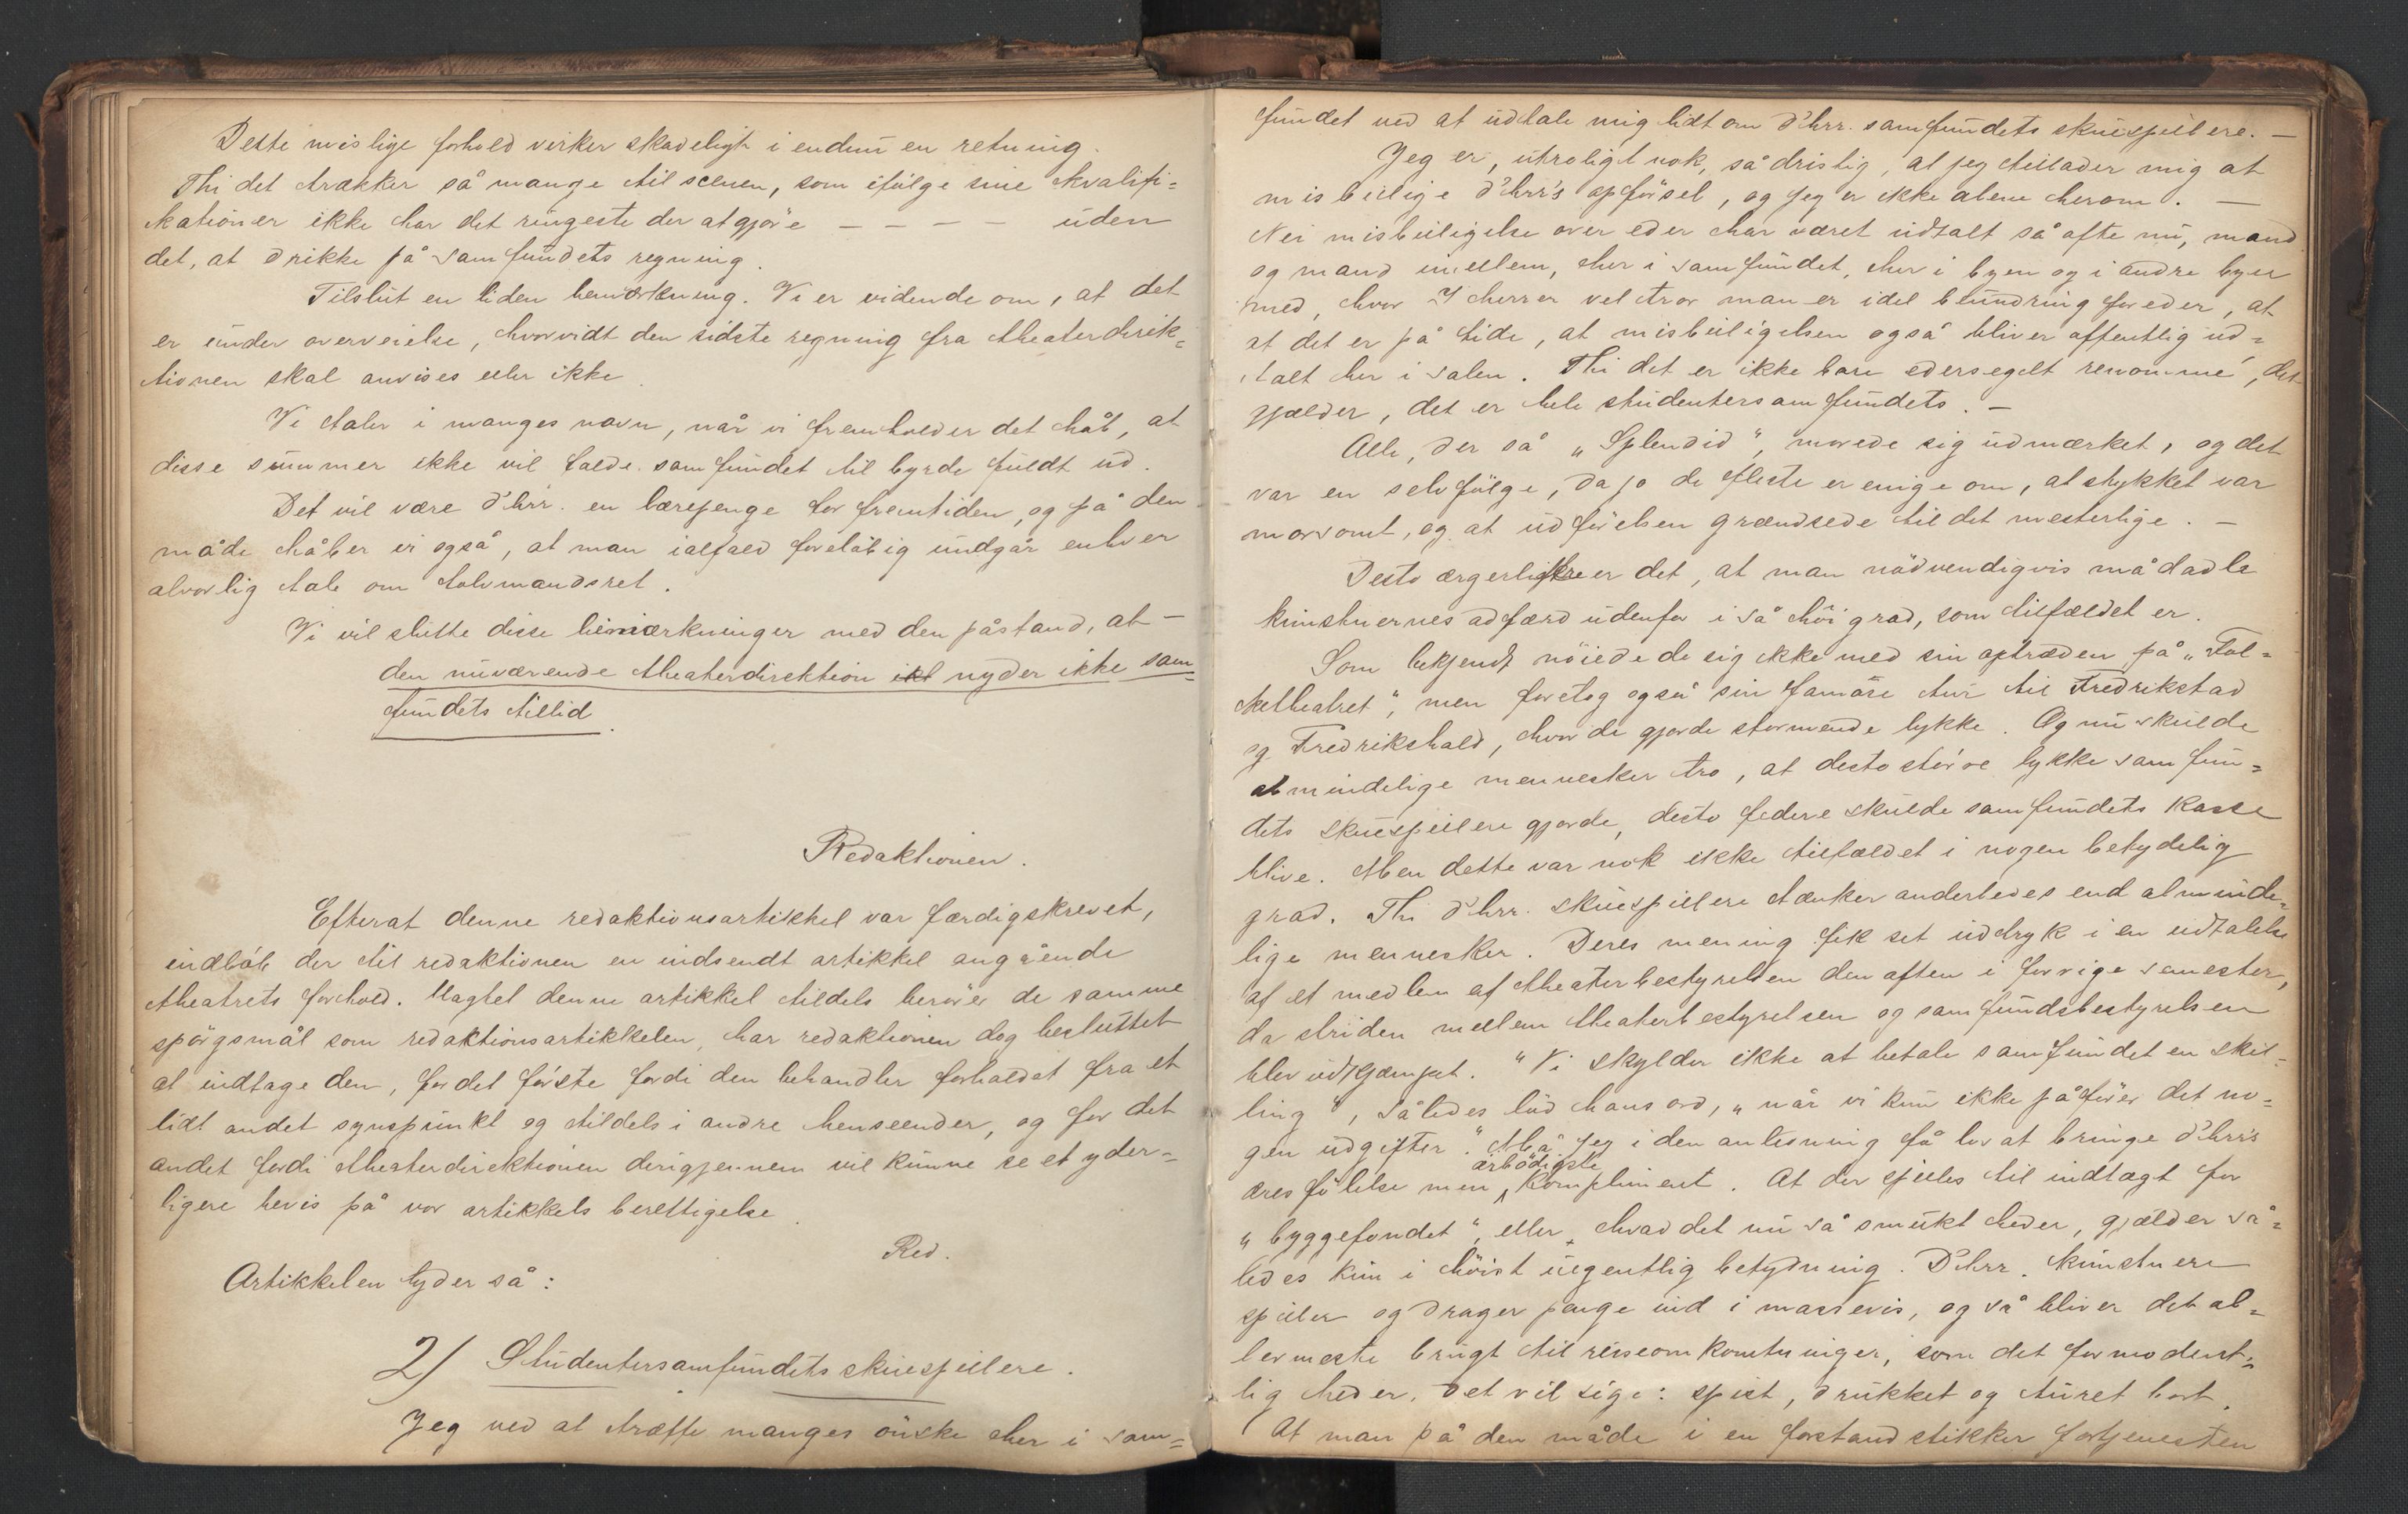 Dette mislige forhold virker skadeligt i endnu en retning.
Thi det trækker så mange til scenen, som ifølge sine kvalifi=
kationer ikke har det ringeste der at gjøre – – – – uden
det, at drikke på samfundets regning.
Tilslut en liden bemærkning. Vi er vidende om, at det
er under overveielse, hvorvidt den sidste regning fra theaterdirek=
tionen skal anvises eller ikke.
Vi taler i manges navn, når vi fremholder det håb, at
disse summer ikke vil falde samfundet til byrde fuldt ud.
Det vil være d'hrr. en lærepenge for fremtiden, og på den
måde håber vi også, at man ialfald foreløbig undgår enhver
alvorlig tale om tolvmandsret.
Vi vil slutte disse bemærkninger med den påstand, at –
den nuværende theaterdirektion ikk nyder ikke sam=
fundets tillid.
Redaktionen.
Efterat denne redaktionsartikkel var færdigskrevet,
indløb der til redaktionen en indsendt artikkel angående
theatrets forhold. Uagtet denne artikkel tildels berører de samme
spørgsmål som redaktionsartikkelen, har redaktionen dog besluttet
at indtage den, for det første fordi den behandler forholdet fra et
lidt andet synspunkt og tildels i andre henseender, og for det
andet fordi theaterdirektionen derigjennem vil kunne se et yder=
ligere bevis på vor artikkels berettigelse.
Red.
Artikkelen lyder så:
2/ Studentersamfundets skuespillere.
Jeg ved at træffe manges ønske her i sam=
fundet ved at udtale mig lidt om d'hrr. samfundets skuespillere. –
Jeg er, utroligt nok, så dristig, at jeg tillader mig at
misbillige d'hrr's opførsel, og jeg er ikke alene herom. –
Nei misbilligelse over eder har været udtalt så ofte nu, mand
og mand imellem, her i samfundet, her i byen og i andre byer
med, hvor I herrer vel tror man er idel beundring for eder, at
at det er på tide, at misbilligelsen også bliver offentlig ud=
talt her i salen. Thi det er ikke bare edersegelt renommé, det
gjælder, det er hele studentersamfundets. –
Alle, der så „Splendid", morede sig udmærket, og det
var en selvfølge, da jo de fleste er enige om, at stykket var
morsomt, og at udførelsen grændsede til det mesterlige. –
Desto ærgerligere er det, at man nødvendigvis må dadle
kunstnernes adfærd udenfor i så høi grad, som tilfældet er.
Som bekjendt nøiede de sig ikke med sin optræden på „Fol=
ketheatret", men foretog også sin famøse tur til Fredrikstad
og Fredrikshald, hvor de gjorde stormende lykke. Og nu skulde
almindelige mennesker tro, at desto større lykke samfun=
dets skuespillere gjorde, desto federe skulde samfundets kasse
blive. Men dette var nok ikke tilfældet i nogen betydelig
grad. Thi d'hrr. skuespillere tænker anderledes end alminde=
lige mennesker. Deres mening fik sit uddryk i en udtalelse
af et medlem af theaterbestyrelsen den aften i forrige semester,
da striden mellem theaterbestyrelsen og samfundsbestyrelsen
blev udkjæmpet. „Vi skylder ikke at betale samfundet en skil=
ling", således lød hans ord, „når vi kun ikke påfører det no=
gen udgifter." Må jeg i den anledning få lov at bringe d'hrr's
æresfølelse min ærbødigste kompliment. At der spilles til indtægt for
„byggefondet", eller hvad det nu så smukt heder, gjælder så=
ledes kun i høist uegentlig betydning. D'hrr. kunstnere
spiller og drager penge ind i massevis, og så bliver det al=
lermeste brugt til reiseomkostninger, som det formodent=
lig heder, det vil sige: spist, drukket og turet bort.
At man på den måde i en forstand stikker fortjenesten